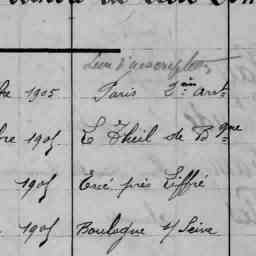 Lieu d'inscription
1905 Paris 2ème arrt
bre 1905 Le Theil de Bgne
1905 Ercé près Liffré
1905 Boulogne s/ Seine